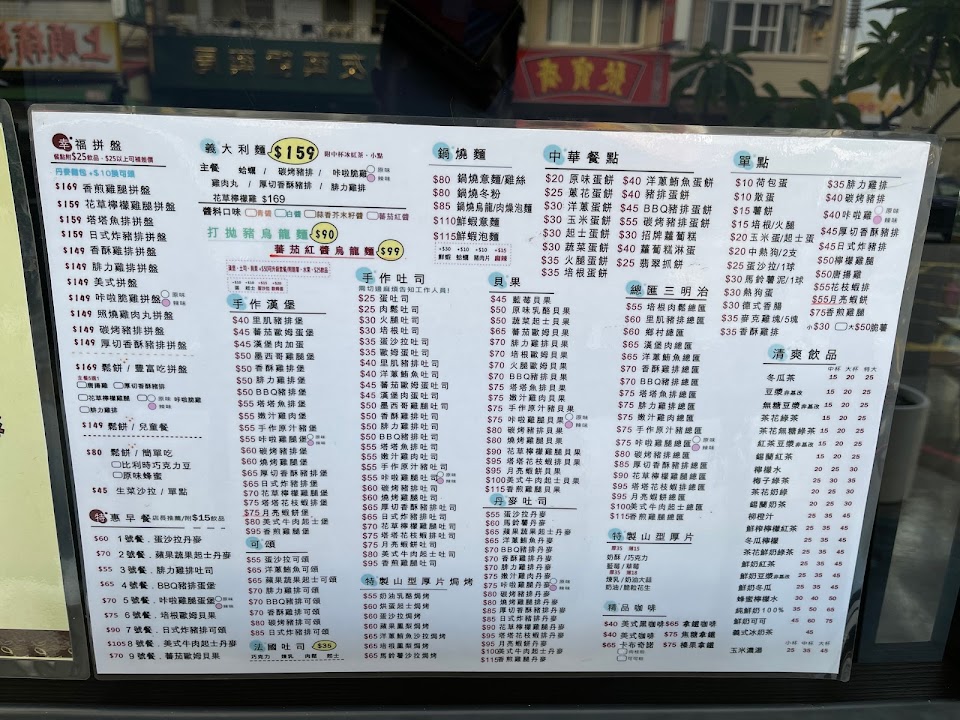 幸福拼盤
餐點附$25飲品,$25以上可補差價
丹麥麵包+$10換可頌
$169 香煎雞腿拼盤
$159 花草檸檬雞腿拼盤
$159 塔塔魚排拼盤
$159 日式炸豬排拼盤
$149 香酥雞排拼盤
$149 腓力雞排拼盤
$149 美式拼盤
$149 咔啦脆雞拼盤 原味 辣味
$149 照燒雞肉丸拼盤
$149 碳烤豬排拼盤
$149 厚切香酥豬排拼盤
$169 鬆餅/豐富吃拼盤
唐揚雞 厚切香酥豬排
花草檸檬雞 咔啦脆雞 原味 辣味
腓力雞排
$149 鬆餅/兒童餐
$80 鬆餅/簡單吃
比利時巧克力豆
原味蜂蜜
$45 生菜沙拉/單點
特惠早餐 店長推薦/附$15飲品
$60 1號餐.蛋沙拉丹麥
$70 2號餐.蘋果蔬果起士丹麥
$55 3號餐.腓力雞排吐司
$65 4號餐.BBQ豬排蛋堡
$70 5號餐.咔啦雞腿蛋堡 原味 辣味
$75 6號餐.培根歐姆貝果
$90 7號餐.日式炸豬排可頌
$105 8號餐.美式牛肉起士丹麥
$70 9號餐.蕃茄歐姆貝果
義大利麵 $159 附中杯冰紅茶、小點
主餐 蛤蠣 / 碳烤豬排 / 咔啦脆雞 原味 辣味
雞肉丸 / 厚切香酥豬排 / 腓力雞排
花草檸檬雞 $169
醬料口味 青醬 白醬 蒜香芥末籽醬 蕃茄紅醬
打拋豬烏龍麵 $90
蕃茄紅醬烏龍麵 $99
手作漢堡
$40 里肌豬排堡
$45 蕃茄歐姆堡
$45 漢堡肉加蛋
$50 墨西哥雞腿堡
$50 香酥雞排堡
$50 腓力雞排堡
$50 BBQ豬排堡
$55 塔塔魚排堡
$55 嫩汁雞肉堡
$55 手作原汁豬堡
$55 咔啦雞腿堡 原味 辣味
$60 碳烤豬排堡
$60 燒烤雞腿堡
$65 厚切香酥豬排堡
$65 日式炸豬排堡
$70 花草檸檬雞腿堡
$75 塔塔花枝蝦排堡
$75 月亮蝦餅堡
$80 美式牛肉起士堡
$95 香煎雞腿堡
可頌
$55 蛋沙拉可頌
$65 洋蔥鮪魚可頌
$65 蘋果蔬果起士可頌
$70 腓力雞排可頌
$70 BBQ豬排可頌
$70 香酥雞排可頌
$80 碳烤豬排可頌
$85 日式炸豬排可頌
法國吐司 $35
巧克力 煉乳 肉鬆 起士
手作吐司
需切邊麻煩告知工作人員!
$25 蛋吐司
$25 肉鬆吐司
$30 火腿吐司
$30 培根吐司
$35 蛋沙拉吐司
$35 歐姆蛋吐司
$40 里肌豬排吐司
$40 洋蔥鮪魚吐司
$45 蕃茄歐姆蛋吐司
$45 漢堡肉蛋吐司
$50 墨西哥雞腿吐司
$50 香酥雞排吐司
$50 腓力雞排吐司
$50 BBQ豬排吐司
$55 塔塔魚排吐司
$55 嫩汁雞肉吐司
$55 手作原汁豬吐司
$55 咔啦雞腿吐司 原味 辣味
$60 碳烤豬排吐司
$60 燒烤雞腿吐司
$65 厚切香酥豬排吐司
$65 日式炸豬排吐司
$70 花草檸檬雞腿吐司
$75 塔塔花枝蝦排吐司
$75 月亮蝦餅吐司
$80 美式牛肉起士吐司
$95 香煎雞腿吐司
特製山型厚片焗烤
$55 奶油乳酪焗烤
$60 烘蛋起士焗烤
$60 蛋沙拉焗烤
$60 蘋果薰梨焗烤
$65 洋蔥鮪魚沙拉焗烤
$65 培根薰梨焗烤
$65 馬鈴薯沙拉焗烤
鍋燒麵
$80 鍋燒意麵/雞絲
$80 鍋燒冬粉
$85 鍋燒烏龍/肉燥泡麵
$110 鮮蝦意麵
$115 鮮蝦泡麵
+$30 鮮蝦 +$10 蛤蠣 +$10 豬肉片 +$15 麻辣
貝果
$45 藍莓貝果
$50 原味乳酪貝果
$50 蔬菜起士貝果
$70 腓力雞排貝果
$70 培根歐姆貝果
$70 火腿歐姆貝果
$70 BBQ豬排貝果
$75 塔塔魚排貝果
$75 嫩汁雞肉貝果
$75 手作原汁豬貝果
$75 咔啦雞腿貝果 原味 辣味
$80 碳烤豬排貝果
$80 燒烤雞腿貝果
$90 花草檸檬雞腿貝果
$95 塔塔花枝蝦排貝果
$95 月亮蝦餅貝果
$100 美式牛肉起士貝果
$115 香煎雞腿貝果
丹麥吐司
$55 蛋沙拉丹麥
$60 馬鈴薯丹麥
$65 洋蔥鮪魚丹麥
$65 蘋果蔬果起士丹麥
$70 BBQ豬排丹麥
$70 香酥雞排丹麥
$70 腓力雞排丹麥
$75 嫩汁雞肉丹麥
$75 咔啦雞腿丹麥 原味 辣味
$80 碳烤豬排丹麥
$80 燒烤雞腿丹麥
$85 厚切香酥豬排丹麥
$85 日式炸豬排丹麥
$90 花草檸檬雞腿丹麥
$95 塔塔花枝蝦排丹麥
$95 月亮蝦餅丹麥
$100 美式牛肉起士丹麥
$115 香煎雞腿丹麥
中華餐點
$20 原味蛋餅
$25 蔥花蛋餅
$30 洋蔥蛋餅
$30 玉米蛋餅
$30 起士蛋餅
$30 蔬菜蛋餅
$35 火腿蛋餅
$35 培根蛋餅
$40 洋蔥鮪魚蛋餅
$40 豬排蛋餅
$45 BBQ豬排蛋餅
$50 碳烤豬排蛋餅
$30 招牌蘿蔔糕
$40 蘿蔔糕淋蛋
$25 翡翠抓餅
總匯三明治
$55 培根肉鬆總匯
$60 里肌豬排總匯
$60 鄉村總匯
$65 漢堡肉總匯
$65 洋蔥鮪魚總匯
$70 香酥雞排總匯
$70 BBQ豬排總匯
$75 塔塔魚排總匯
$75 腓力雞排總匯
$75 嫩汁雞肉總匯
$75 手作原汁豬總匯
$75 咔啦雞腿總匯 原味 辣味
$80 碳烤豬排總匯
$85 厚切香酥豬排總匯
$85 日式炸豬排總匯
$90 花草檸檬雞腿總匯
$95 塔塔花枝蝦排總匯
$95 月亮蝦餅總匯
$100 美式牛肉起士總匯
$115 香煎雞腿總匯
特製山型厚片
厚35 薄15
奶酥/巧克力
藍莓/草莓
厚35 薄18
煉乳/奶油大蒜
奶油/脆粒花生
精品咖啡
$40 美式黑咖啡
$40 美式咖啡
$65 卡布奇諾
$65 拿鐵
$75 焦糖拿鐵
$75 榛果拿鐵
單點
$10 荷包蛋
$10 散蛋
$15 薯餅
$15 培根/火腿
$20 玉米蛋/起士蛋
$20 中熱狗/2支
$25 蛋沙拉/1球
$30 馬鈴薯泥/1球
$30 熱狗蛋
$30 德式香腸
$35 麥克雞塊/5塊
$35 香酥雞排
$35 腓力雞排
$40 碳烤豬排
$40 咔啦雞 原味 辣味
$45 厚切香酥豬排
$45 日式炸豬排
$50 檸檬雞
$50 唐揚雞
$55 花枝蝦排
$55 月亮蝦餅
$75 香煎雞腿
小$30 大$50 脆薯
清爽飲品
中杯 大杯 特大
冬瓜茶 15 20 25
豆漿 非基改 15 20 25
無糖豆漿 非基改 15 20 25
茶花綠茶 15 20 25
茶花無糖綠茶 15 20 25
紅茶豆漿 非基改 15 20 25
錫蘭紅茶 15 20 25
檸檬水 20 25 30
梅子綠茶 25 30 35
茶花奶綠 20 25 30
錫蘭奶茶 20 25 30
柳橙汁 25 35 45
鮮榨檸檬紅茶 25 35 45
冬瓜檸檬 25 35 45
茶花鮮奶綠茶 25 35 45
鮮奶紅茶 25 35 45
鮮奶豆漿 非基改 25 35 45
鮮奶冬瓜 25 35 45
蜂蜜檸檬水 30 40 50
純鮮奶100% 35 50 65
鮮奶可可 45 60 75
義式冰奶茶 45
小杯 中杯 大杯
玉米濃湯 25 35 45